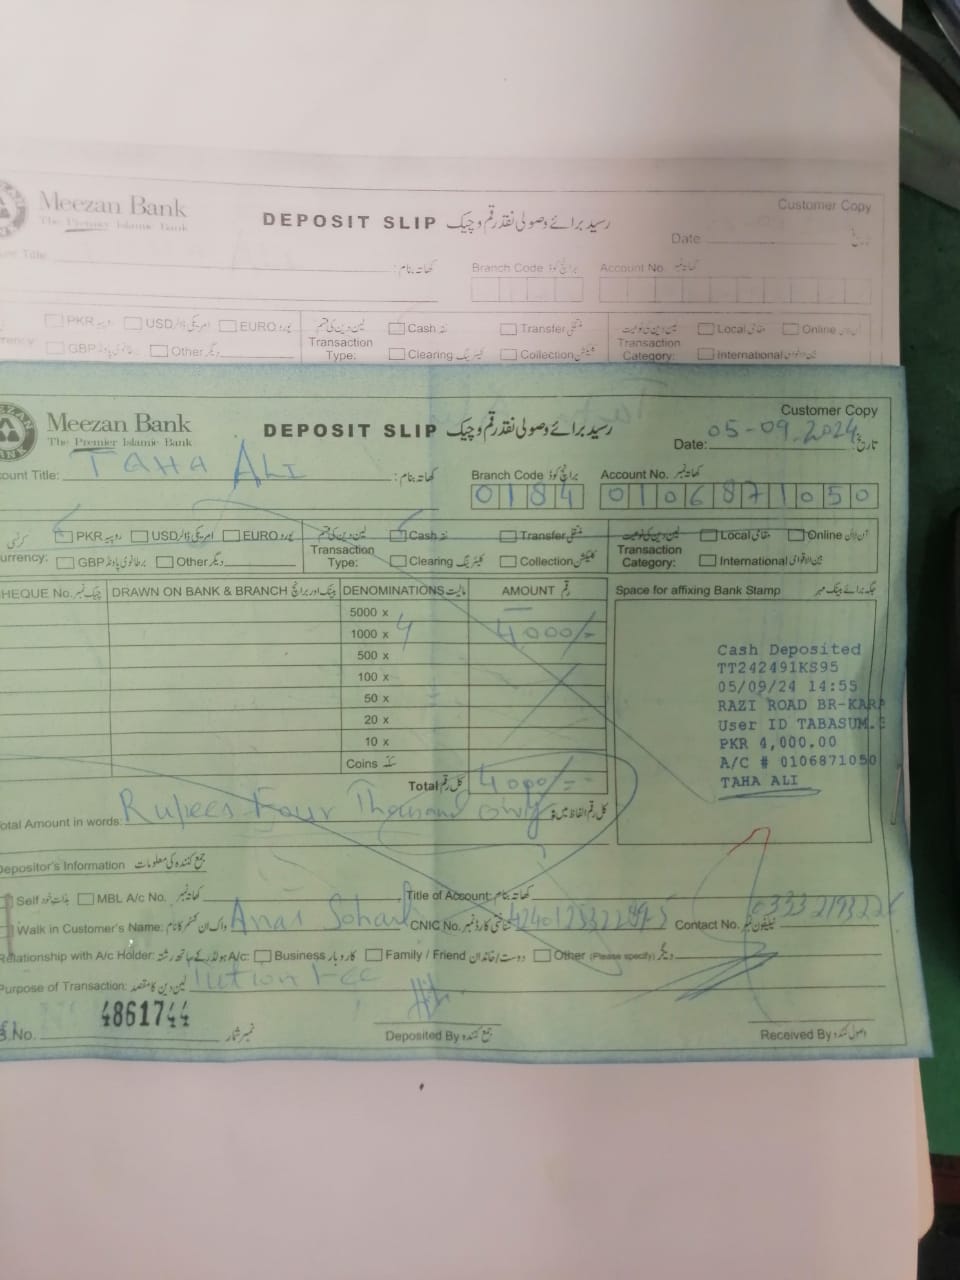 Meezan Bank
The Premier Islamic Bank
DEPOSIT SLIP رسید برائے وصولی نقد رقم و چیک
Customer Copy
Date
Title کھاتہ بنام:
Branch Code برانچ کوڈ Account No. کھاتہ نمبر
PKR روپیہ USD امریکی ڈالر EURO یورو
GBP برطانوی پاؤنڈ Other دیگر
Transaction Type: Cash نقد Transfer منتقلی
Clearing کلیئرنگ Collection کلیکشن
Transaction Category: Local مقامی Online آن لائن
International بین الاقوامی
Meezan Bank
The Premier Islamic Bank
DEPOSIT SLIP رسید برائے وصولی نقد رقم و چیک
Customer Copy
Date: 05-09-2024 تاریخ
ount Title: TAHA ALI کھاتہ بنام:
Branch Code برانچ کوڈ Account No. کھاتہ نمبر
0184 0106871050
کرنسی PKR روپیہ USD امریکی ڈالر EURO یورو
urrency: GBP برطانوی پاؤنڈ Other دیگر
Transaction Type: Cash نقد Transfer منتقلی
Clearing کلیئرنگ Collection کلیکشن
Transaction Category: Local مقامی Online آن لائن
International بین الاقوامی
HEQUE No. چیک نمبر DRAWN ON BANK & BRANCH بینک اور برانچ DENOMINATIONS مالیت AMOUNT رقم Space for affixing Bank Stamp جگہ برائے بینک مہر
5000 x
1000 x 4 4,000/-
500 x
100 x
50 x
20 x
10 x
Coins سکے
Cash Deposited
TT242491KS95
05/09/24 14:55
RAZI ROAD BR-KARA
User ID TABASUM.
PKR 4,000.00
A/C # 0106871050
TAHA ALI
Total کل رقم 4000/-
otal Amount in words: Rupees Four Thousand only کل رقم الفاظ میں:
Depositor's Information جمع کنندہ کی معلومات
Self بذات خود MBL A/c No. کھاتہ نمبر Title of Account: کھاتہ بنام:
Walk in Customer's Name: Anas CNIC No. شناختی کارڈ نمبر Contact No. ٹیلیفون نمبر
Relationship with A/c Holder: A/c ہولڈر کے ساتھ رشتہ: Business کاروبار Family / Friend دوست / خاندان Other (Please specify) دیگر
Purpose of Transaction: لین دین کا مقصد: Tution Fee
S.No. 4861744 نمبر شمار
Deposited By جمع کنندہ Received By وصول کنندہ